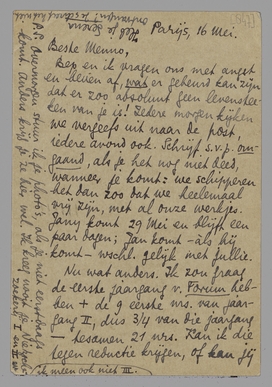 Parijs, 16 Mei.
Beste Menno,
Bep en ik vragen ons met angst
en beven af, wat er gebeurd kan zijn
dat er zoo absoluut geen levenstee-
ken van je is! Iedere morgen kijken
we vergeefs uit naar de post,
iedere avond ook. Schrijf s.v.p. om-
gaand, als je het nog niet deed,
wanneer je komt: we schipperen
het dan zoo dat we heelemaal
vrij zijn, met al onze werkjes.
Jany komt 29 Mei en blijft een
paar dagen; Jan komt - als hij
komt - wschl. gelijk met jullie.
Nu wat anders. Ik zou graag
de eerste jaargang v. Forum heb-
ben + de 9 eerste nrs. van jaar-
gang II, dus 3/4 van die jaargang
- tesamen 21 nrs. Kan ik die
tegen reductie krijgen, of kan jij
ik meen ook niet III.
P.S. Overmorgen stuur ik je photo's, als je niet eerstdaags
komt, anders krijg je ze hier wel.